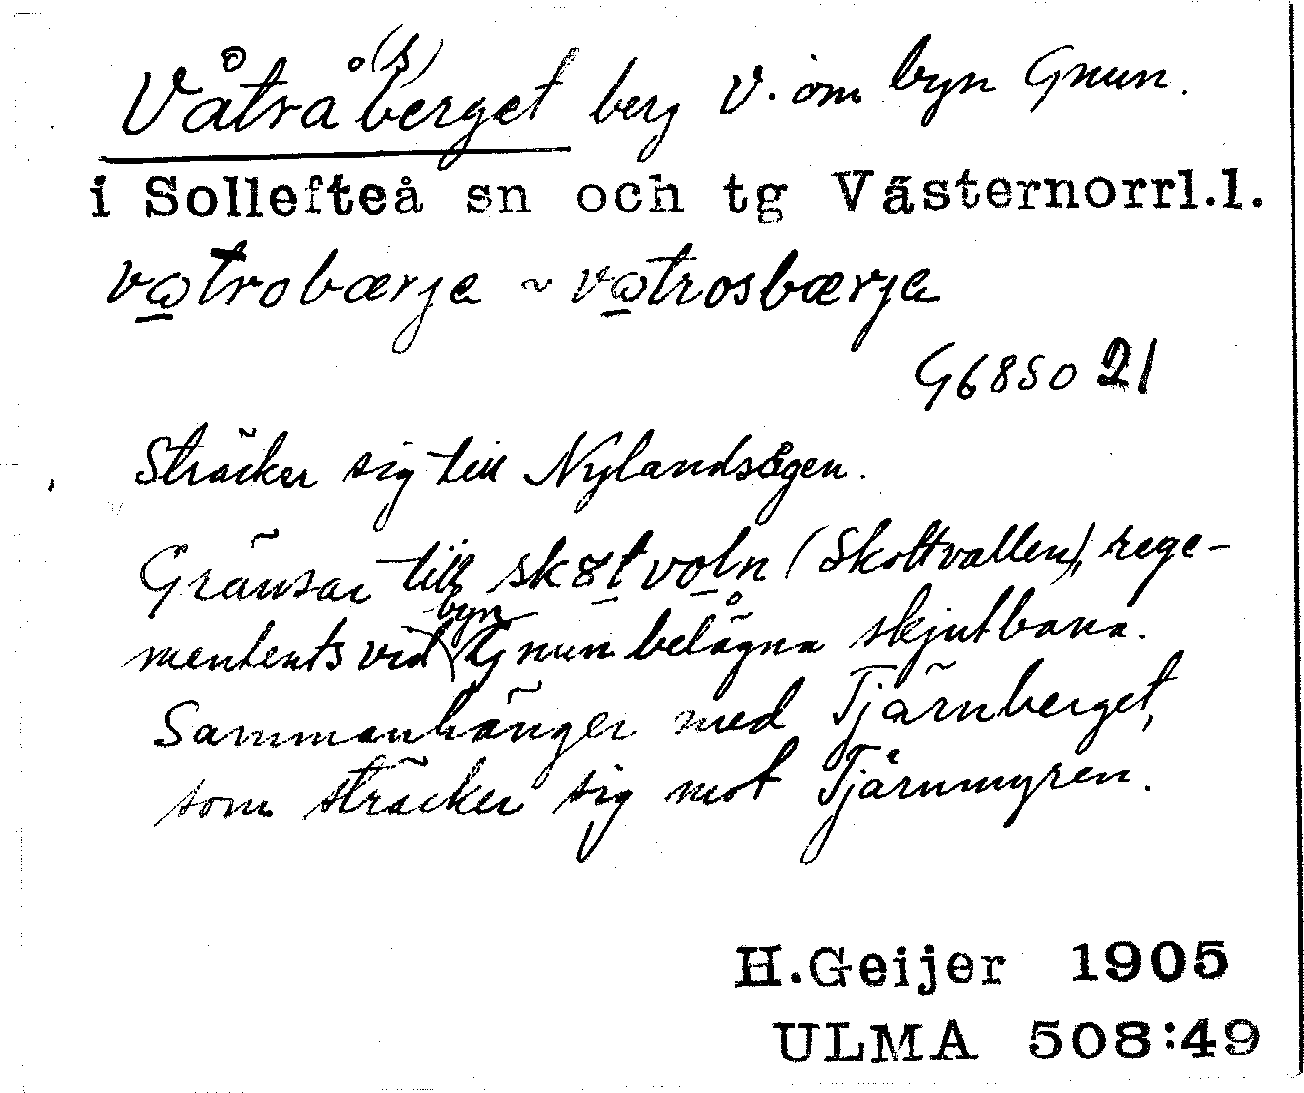 Våtrå(s)berget berg V. om byn Gnun.
i Sollefteå sn och tg Västernorrl.l.
vatrobærja ~ vatrosbærja
G6850 21
Sträcker sig till Nylandsågen.
Gränsar till skøtvoln (Skottvallen), rege-
mentents vid byn Gnun belägna skjutbana.
Sammanhänger med Tjärnberget,
som sträcker sig mot Tjärnmyren.
H.Geijer 1905
ULMA 508:49